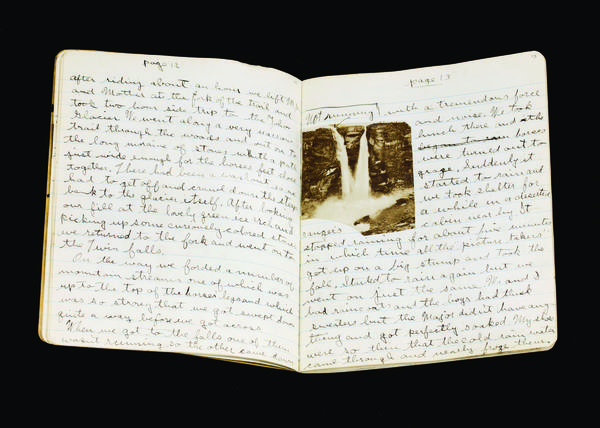 page 12
after riding about an hour we left Mr
and Mother at the fork of the trail and
took two hour side trip to the Yoho
Glacier. We went along a very narrow
trail through the woods and out on to
the long moraine of stones with a path
just wide enough for the horses feet close
together. There had been a washout so we
had to get off and crawl down the steep
bank to the glacier itself. After looking
our fill at the lovely green ice and
picking up some curiously colored stones
we returned to the fork and went on to
the Twin falls.
On the way we forded a number of
mountain streams one of which was
up to the top of the horses legs and which
was so strong that we got swept down
quite a way before we got across.
When we got to the falls one of them
wasn't running so the other came down
page 13
Not running
with a tremendous force
and noise. We took
lunch there and the
horses
were turned out to
graze. Suddenly it
started to rain and
we took shelter for
a while in a deserted
rangers cabin near by. It
stopped raining for about five minutes
in which time all the picture takers
got up on a big stump and took the
fall. It started to rain again but we
went on just the same. H. and I
had raincoats and the boys had thick
sweaters but the Major didn't have any-
thing and got perfectly soaked. My shoes
were so thin that the cold rain water
came through and nearly froze them.